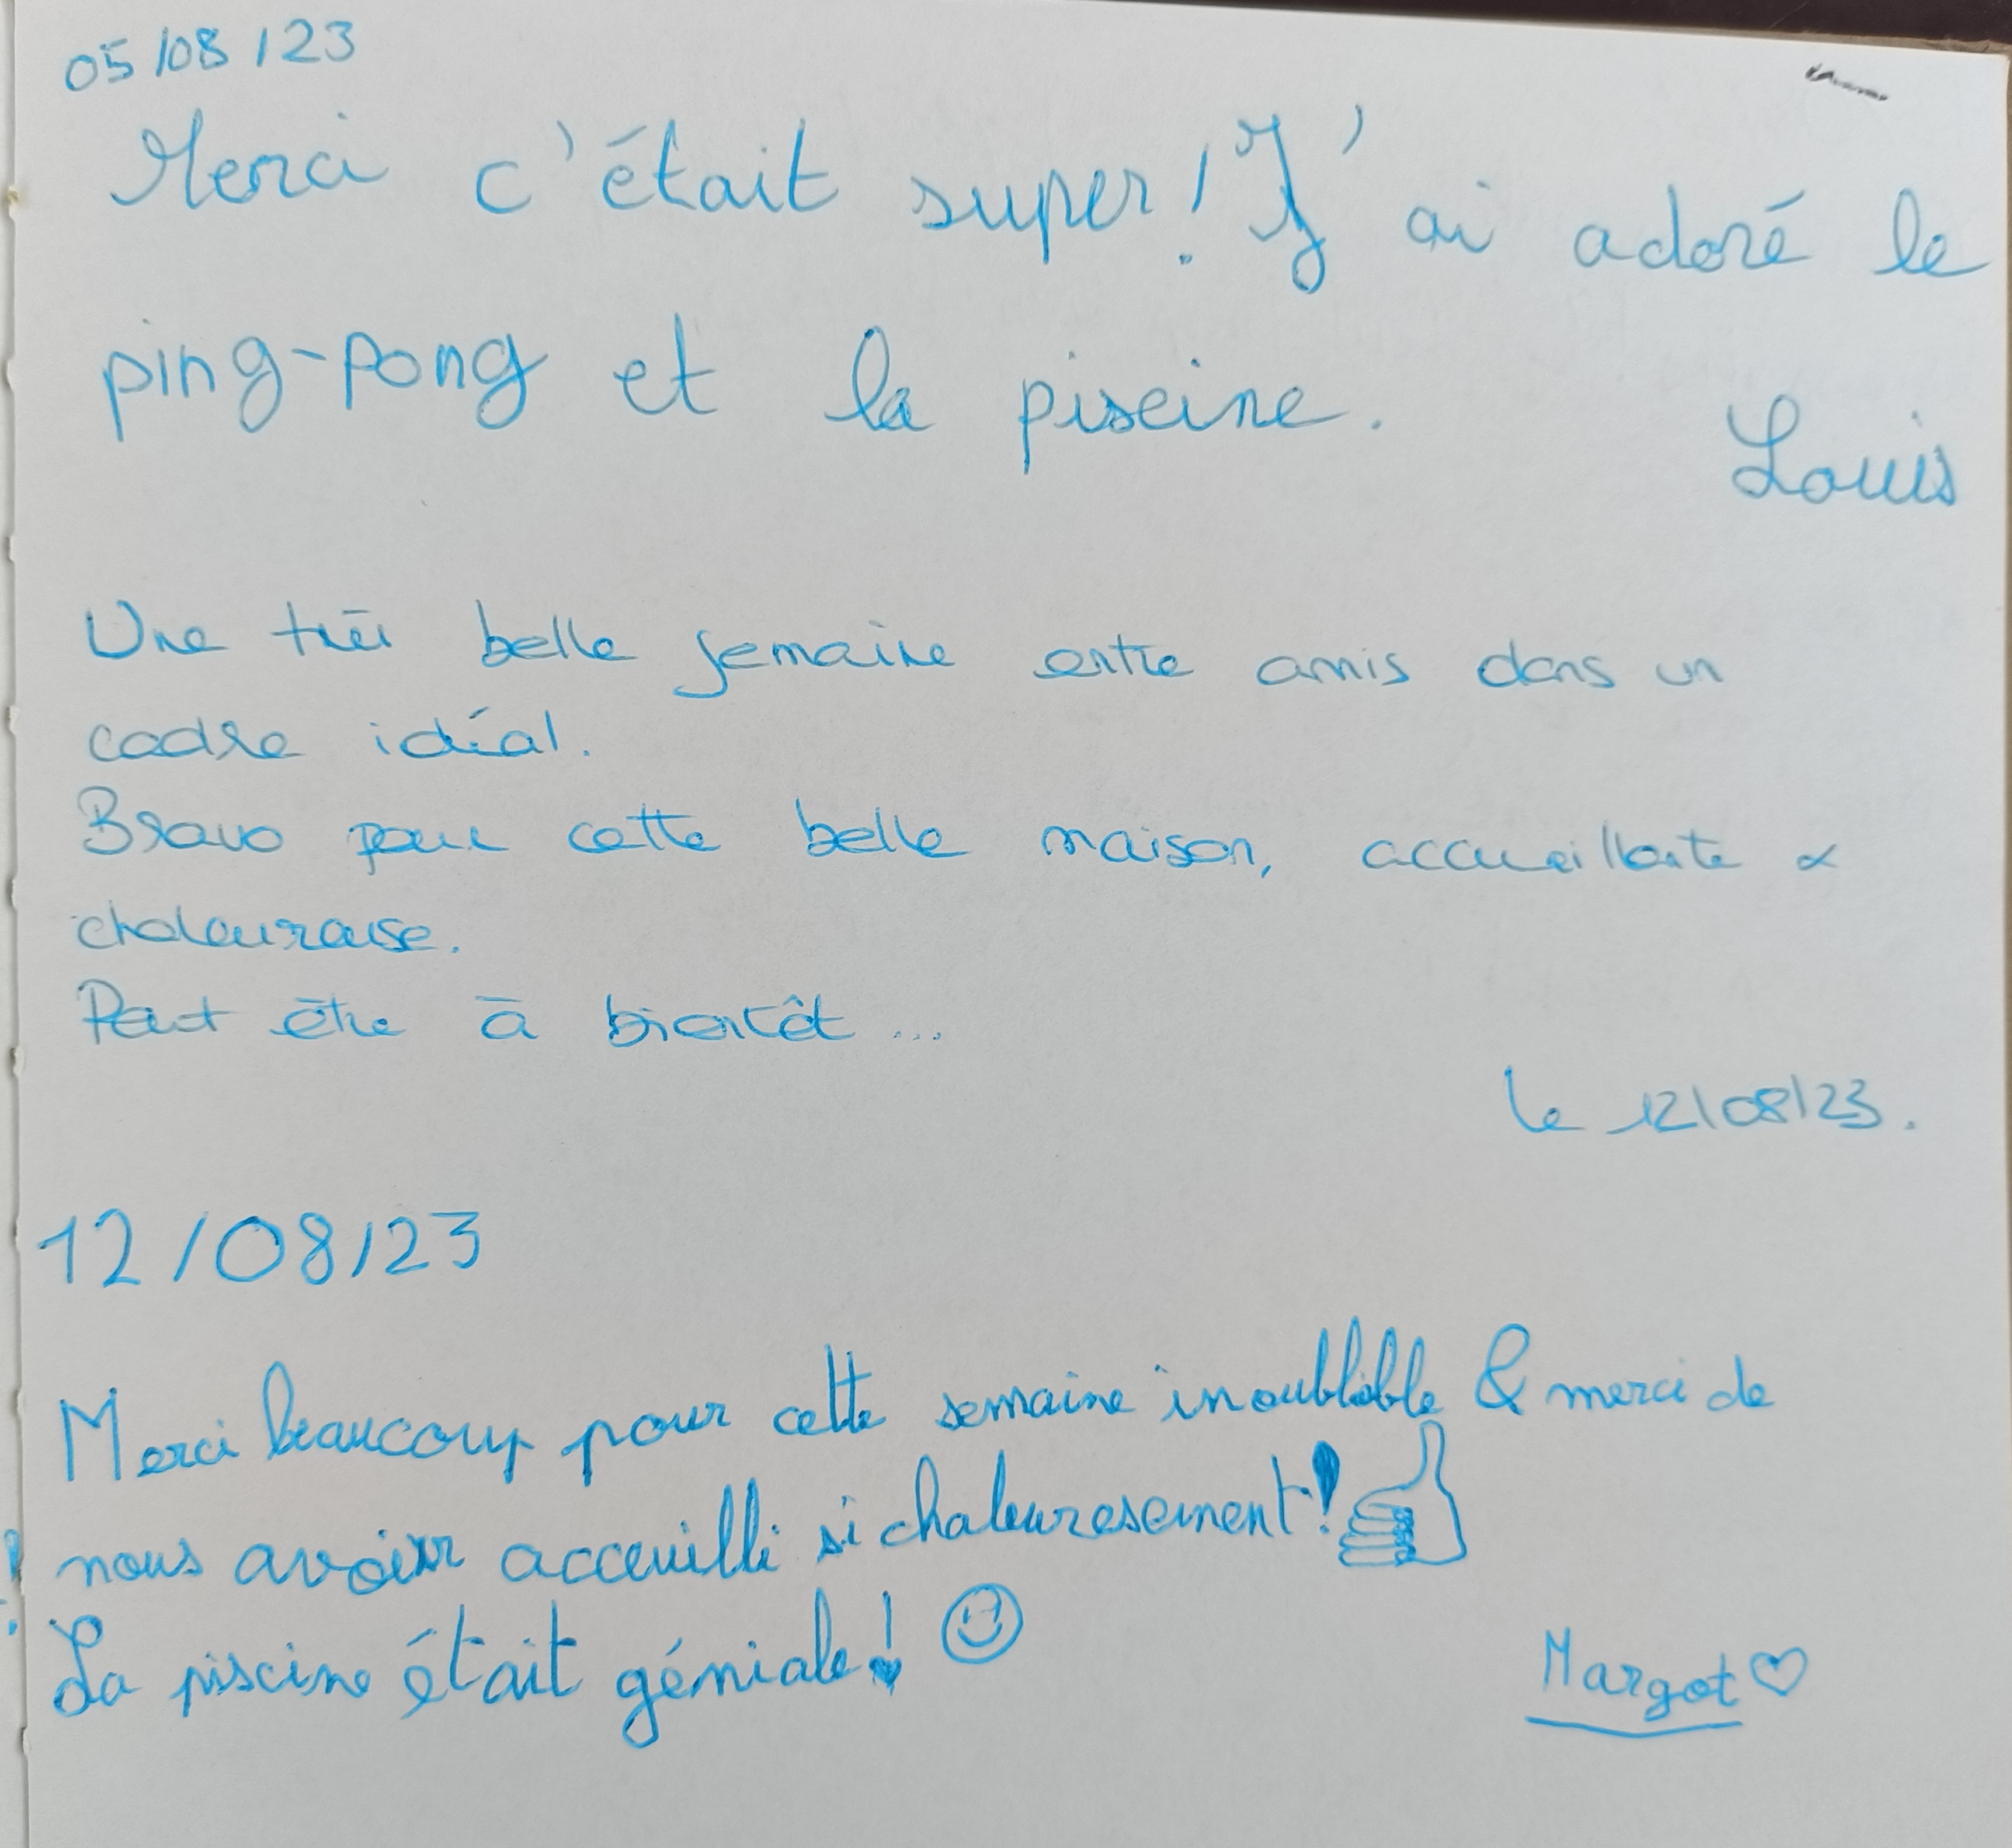 05/08/23
Merci c'était super! J'ai adoré le
ping-pong et la piscine.
Louis
Une très belle semaine entre amis dans un
cadre idéal.
Bravo pour cette belle maison, accueillante &
chaleureuse.
Peut être à bientôt ...
le 12/08/23.
12/08/23
Merci beaucoup pour cette semaine inoubliable & merci de
nous avoir acceuilli si chaleuresement!
La piscine était géniale!
Margot